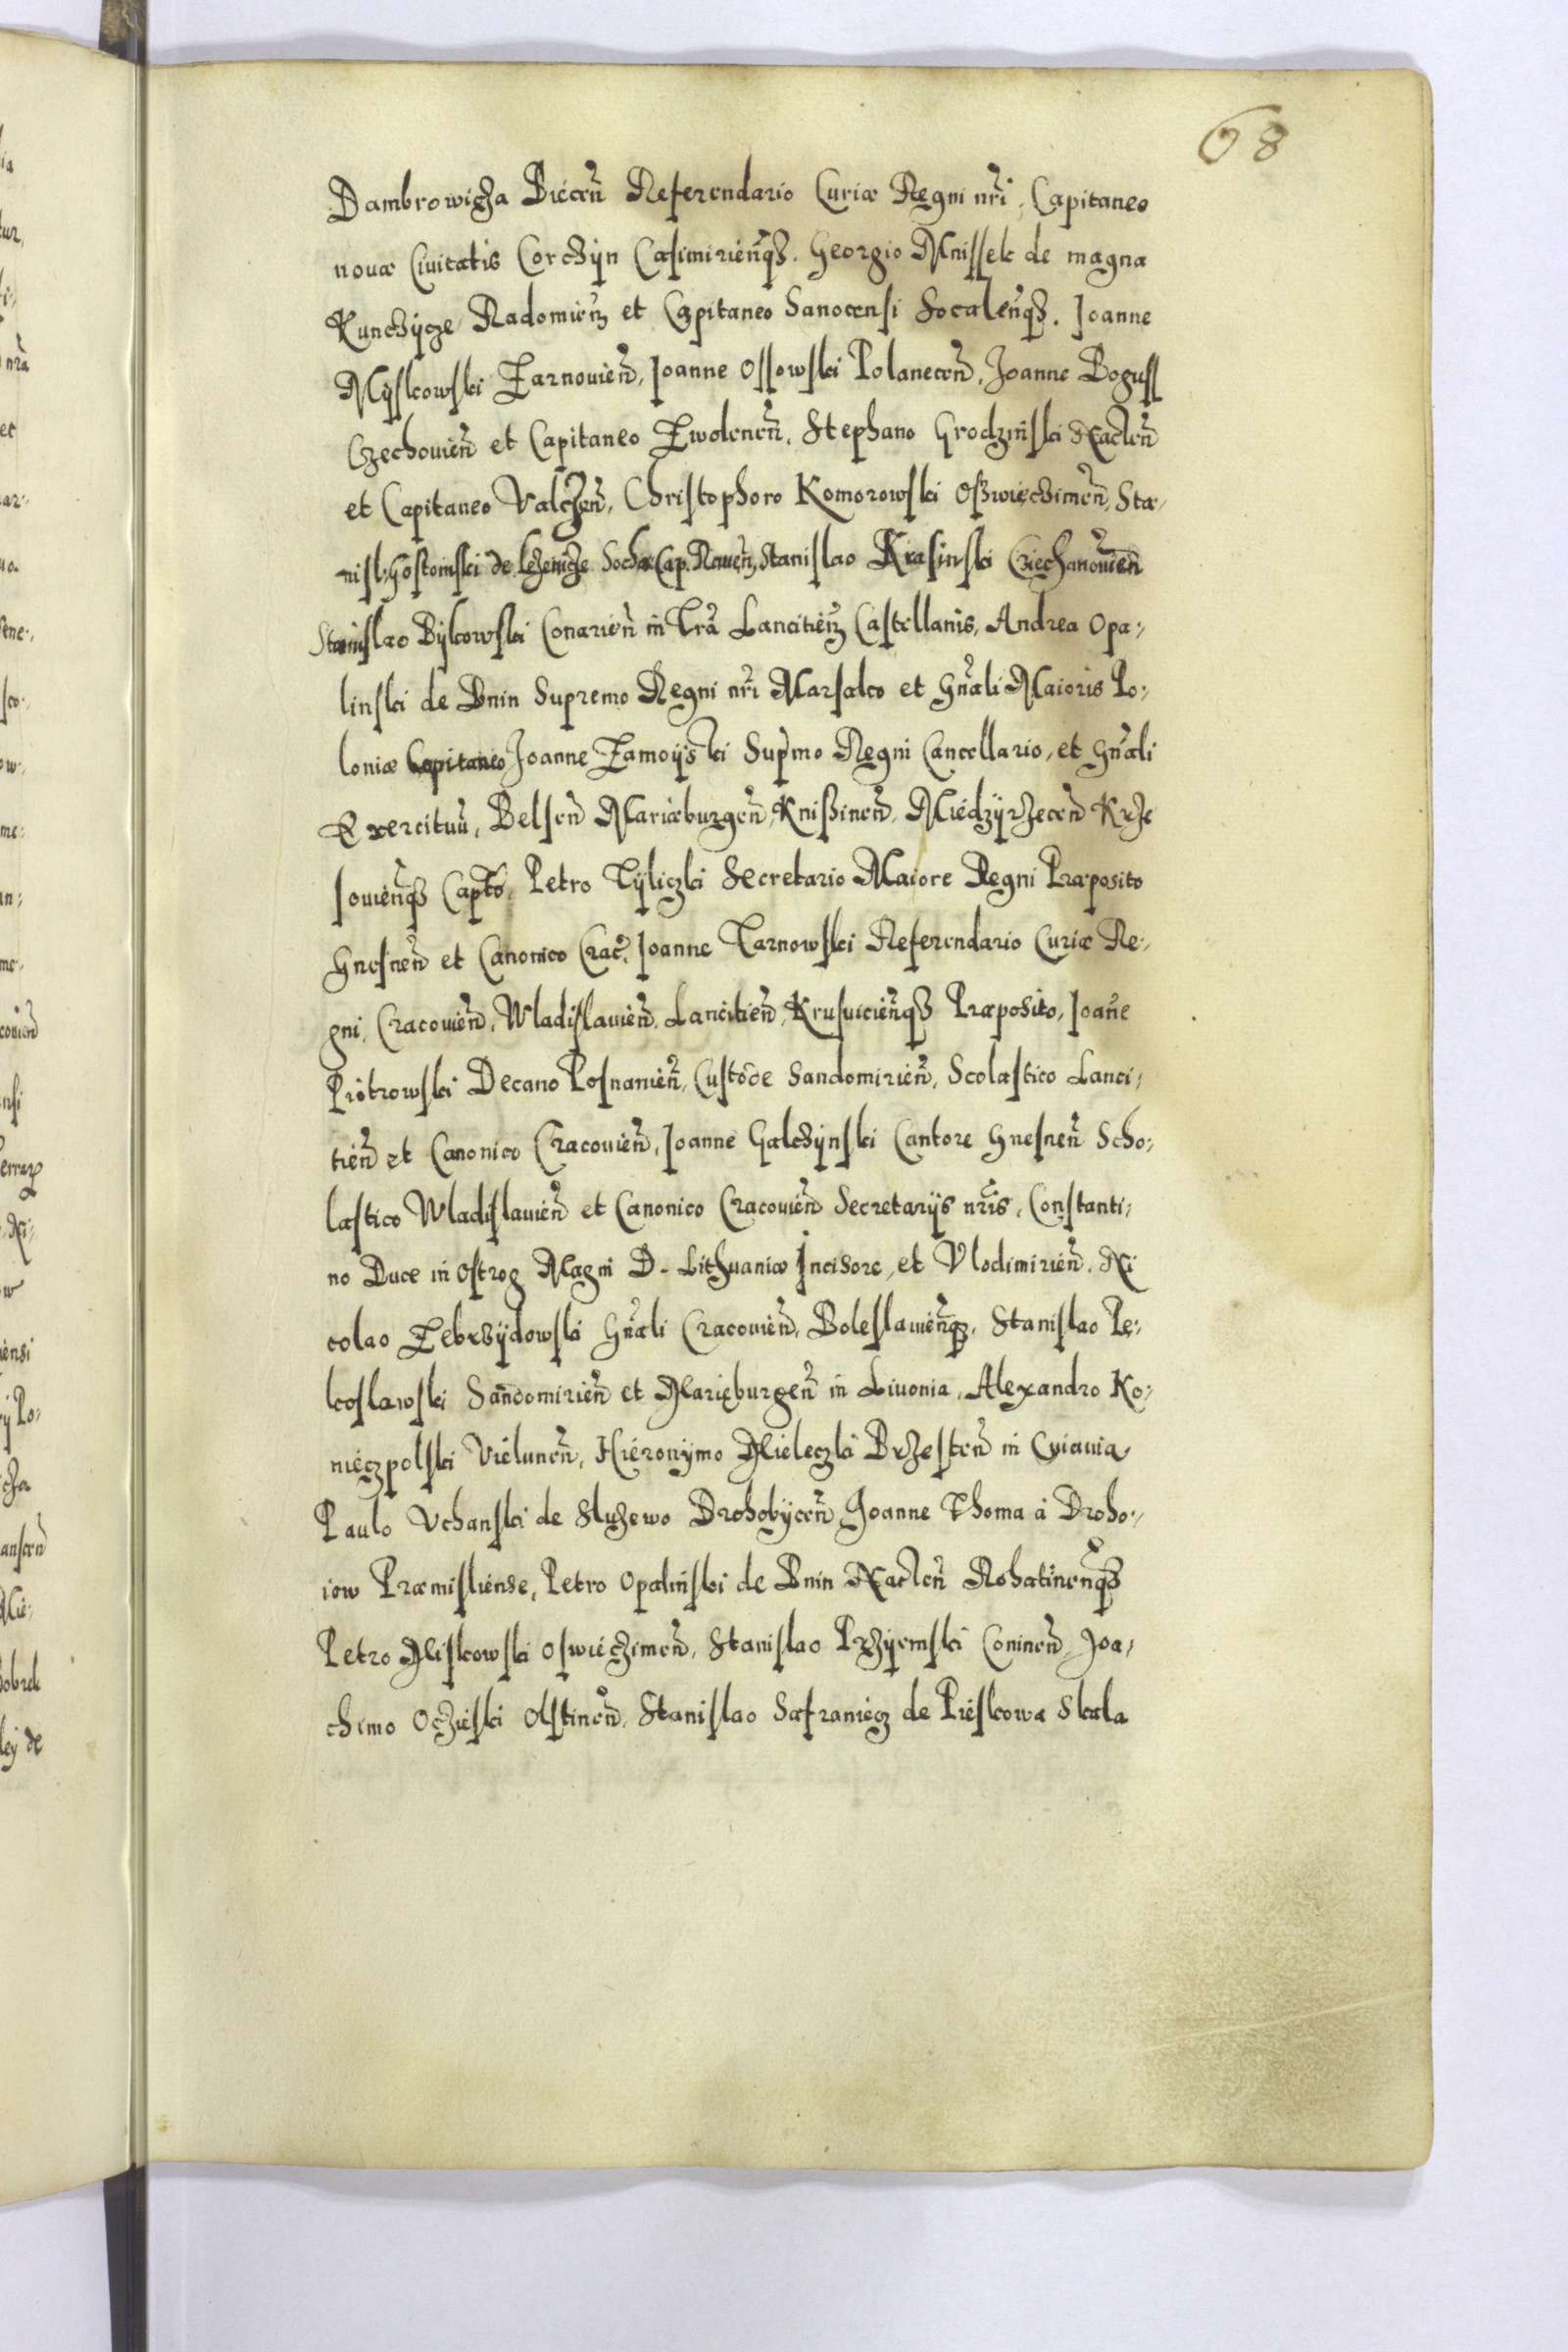 68
Dambrowicza Biecen̄ Referendario Curiæ Regni nr̄i, Capitaneo
nouæ Ciuitatis Corczÿn Casimirien̄qz. Georgio Mnissek de magna
Kunczÿcze Radomien̄ et Capitaneo Sanocensi Socalen̄qz. Joanne
Mÿskowski Zarnouien̄, Joanne Ossowski Polanecen̄, Joanne Boguss
Czechouien̄ et Capitaneo Zwolenen̄, Stephano Grodzinski Naclen̄
et Capitaneo Valczen̄, Christophoro Komorowski Osswięczimen̄, Sta-
nisl: Gostomski de Lezenicze Socha: Cap. Rauen̄, Stanislao Krasinski Cziechanouien̄
Stanislao Bÿkowski Conarien̄ in Tr̄a Lancitien̄ Castellanis, Andrea Opa:
linski de Bnin Supremo Regni nr̄i Marsalco et Gn̄ali Maioris Po:
loniæ Capitaneo Joanne Zamoÿski Supr̄mo Regni Cancellario, et Gn̄ali
Exercituū, Belsen̄ Mariæburgen̄, Knissinen̄, Miedzÿrzecen̄ Krze
souien̄qz Capt̄o, Petro Tÿliczki Secretario Maiore Regni Præposito
Gnesnen̄ et Canonico Crac̄, Joanne Tarnowski Referendario Curiæ Re:
gni, Cracouien̄, Wladislauien̄, Lancitien̄, Krusuicien̄qz Præposito, Joan̄e
Piotrowski Decano Posnanien̄, Custode Sandomirien̄, Scolastico Lanci:
tien̄ et Canonico Cracouien̄, Joanne Galczÿnski Cantore Gnesnen̄ Scho:
lastico Wladislauien̄ et Canonico Cracouien̄ Secretarÿs nr̄is, Constanti:
no Duce in Ostrog Magni D. Lithuaniæ Incisore, et Vlodimirien̄, Ni
colao Zebrzÿdowski Gn̄ali Cracouien̄, Boleslauien̄qz, Stanislao Pę:
koslawski Sandomirien̄ et Marięburgen̄ in Liuonia, Alexandro Ko:
nieczpolski Vielunen̄, Hieronÿmo Mieleczki Brzesten̄ in Cuiauia,
Paulo Vchanski de Sluzewo Drohobÿcen̄, Joanne Thoma à Droho:
iow Præmisliense, Petro Opalinski de Bnin Naclen̄ Rohatinen̄qz
Petro Miskowski Oswięczimen̄, Stanislao Przÿemski Coninen̄, Joa:
chimo Oczieski Olstinen̄, Stanislao Safraniecz de Pieskowa Skala